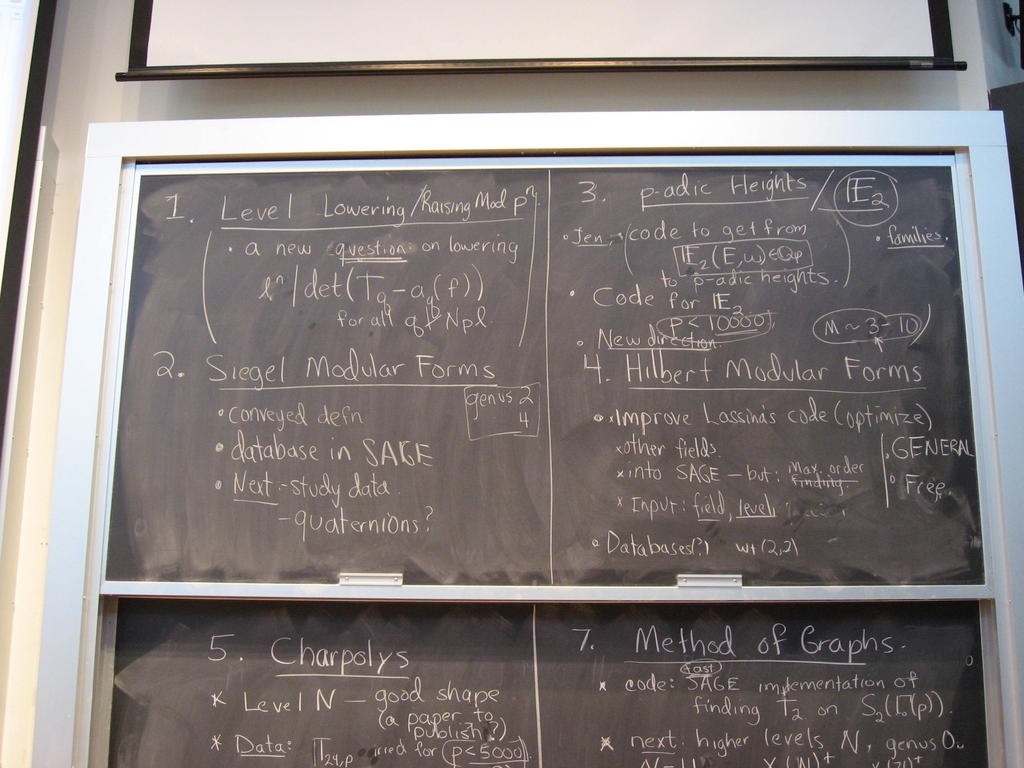 1. Level Lowering/Raising Mod pⁿ
• a new question on lowering
ℓⁿ | det(T_q - a_q(f))
for all q ∤ Npℓ
2. Siegel Modular Forms
genus 2
4
• conveyed defn
• database in SAGE
• Next: - study data
- quaternions?
3. p-adic Heights / 𝔼₂
• Jen (code to get from
𝔼₂(E,ω) ∈ ℚp
to p-adic heights.)
• families.
• Code for 𝔼₂
p < 10000
M ~ 3-10
• New direction.
4. Hilbert Modular Forms
• × Improve Lassina's code (optimize)
× other fields.
× into SAGE — but: Max. order
finding
× Input: field, level
• GENERAL
• Free
• Databases(?) wt (2,2)
5. Charpolys
* Level N — good shape
(a paper to
publish?)
* Data: T_{24,p} for (p < 5000)
7. Method of Graphs.
* code: (fast) SAGE implementation of
finding T₂ on S₂(Γ₀(p)).
* next: higher levels N, genus 0.